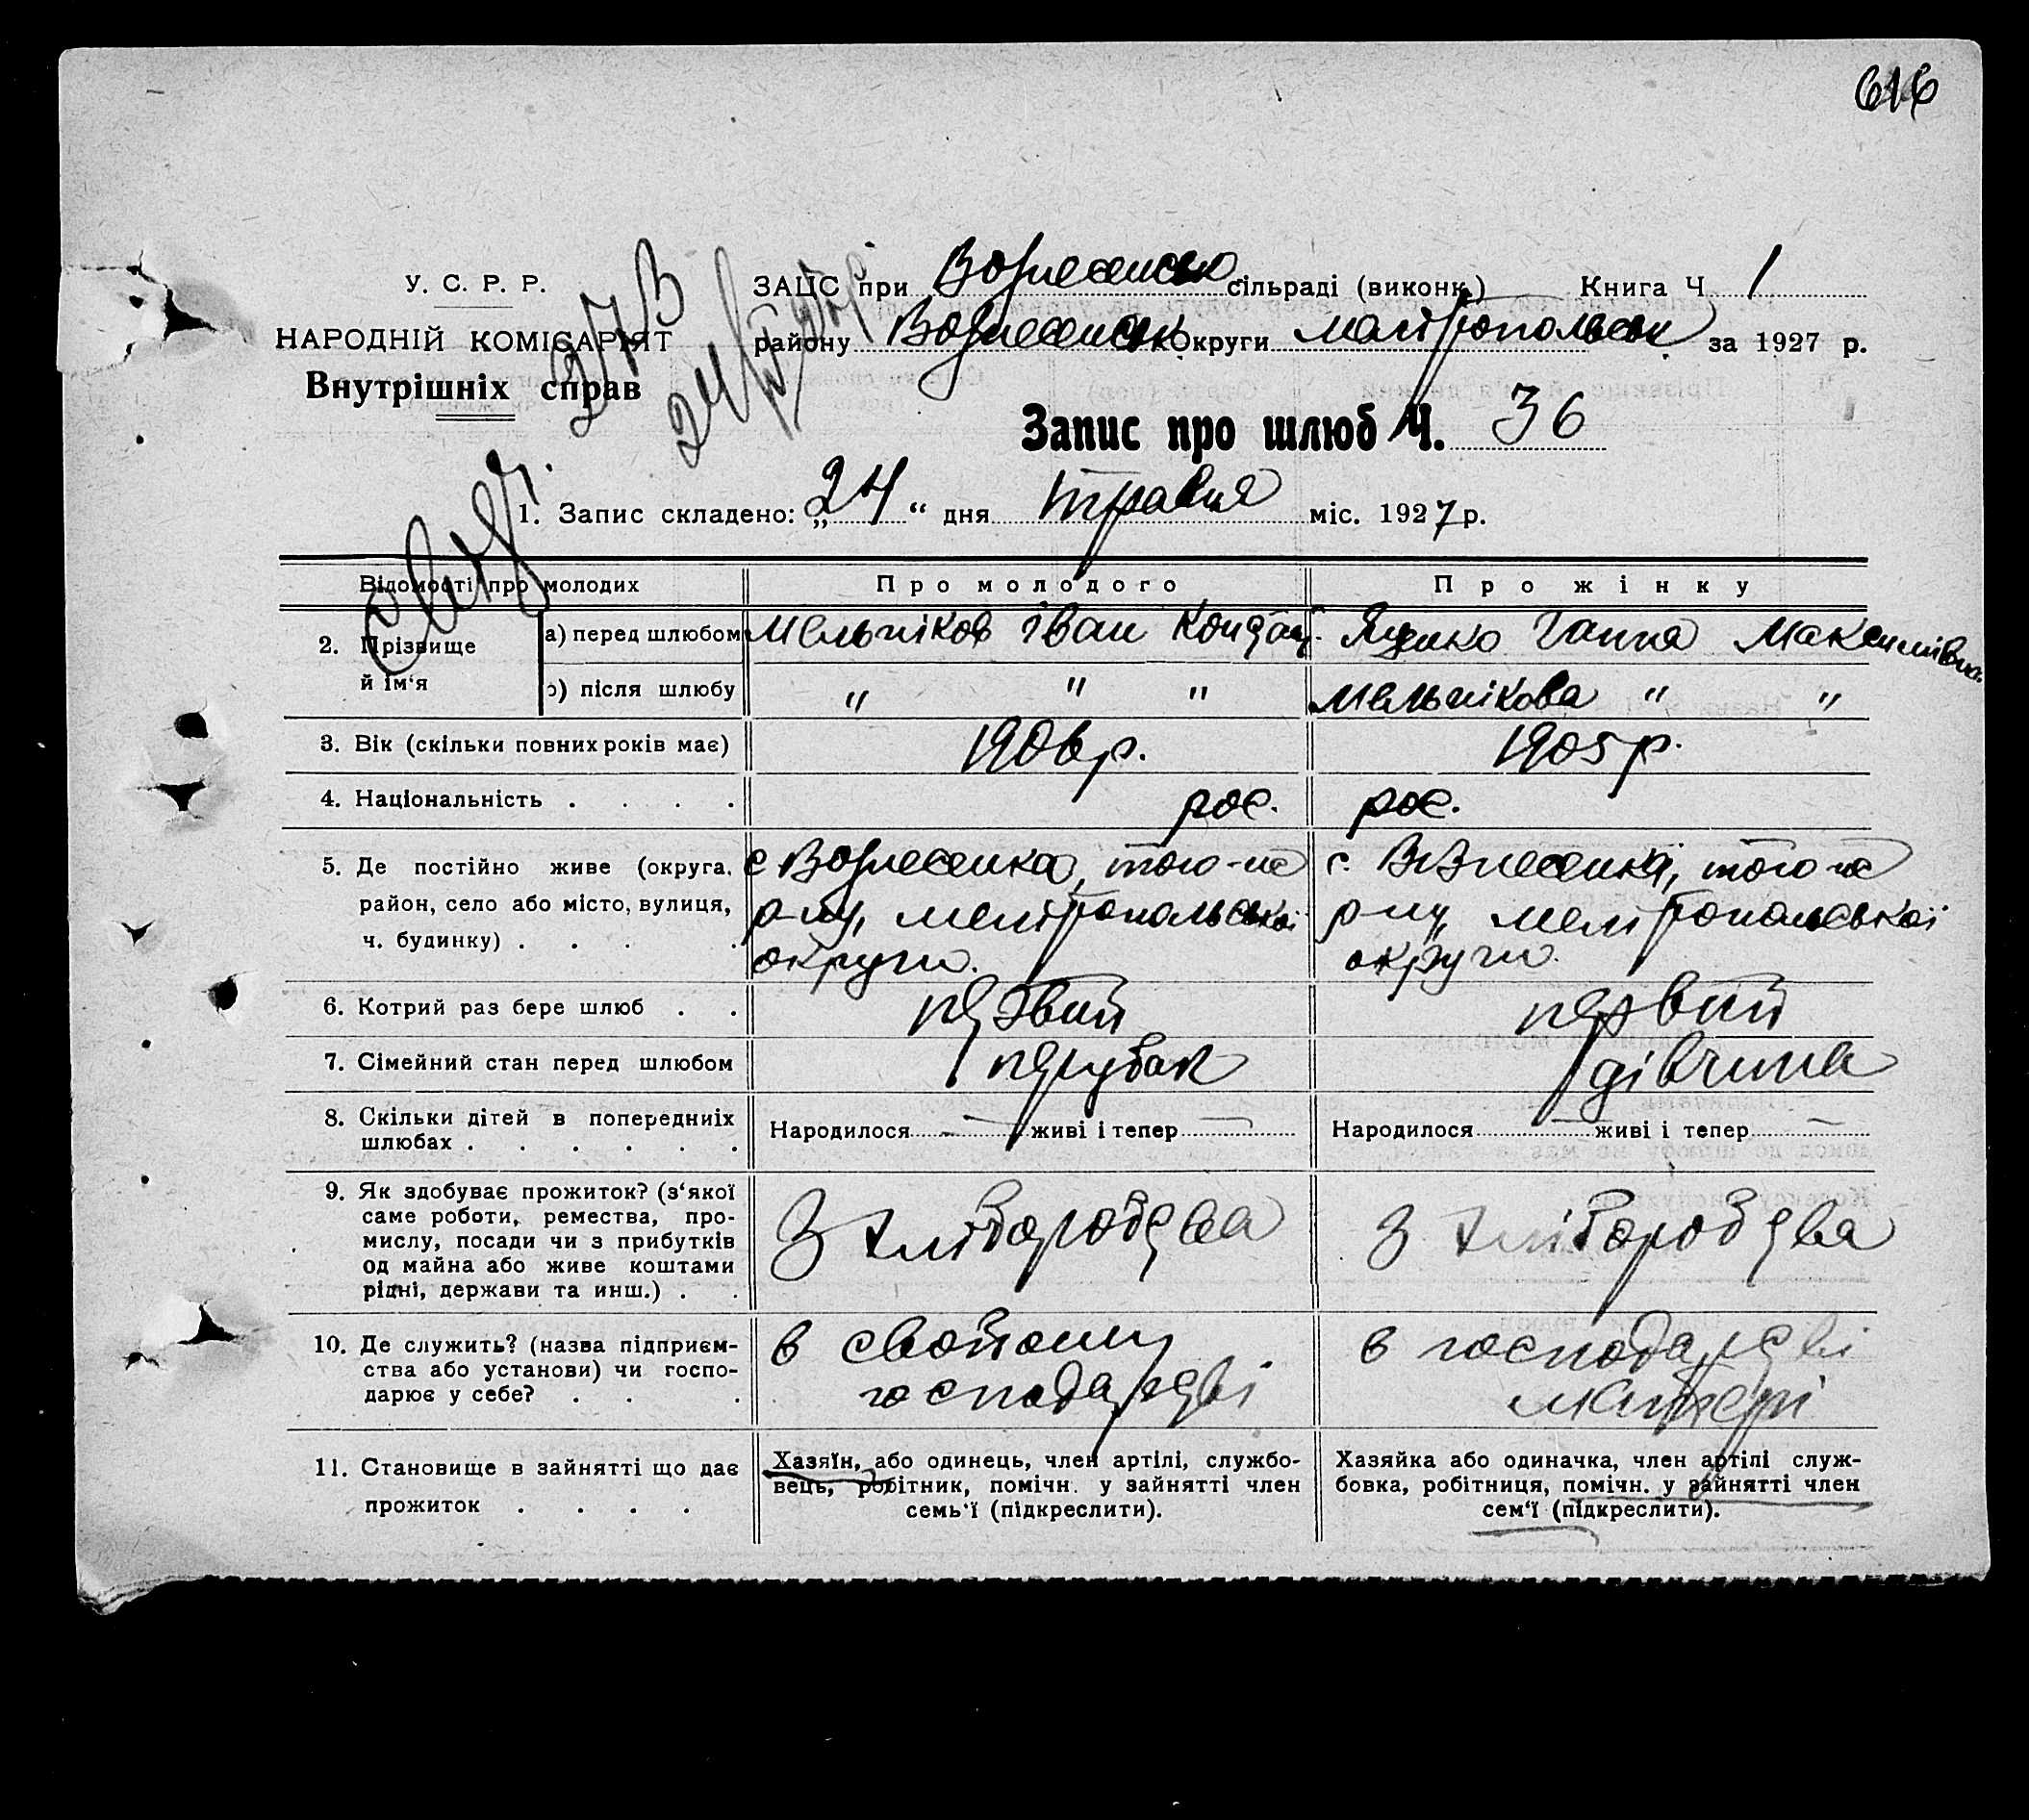 616
У. С. Р. Р.
НАРОДНІЙ КОМІСАРІЯТ
Внутрішніх справ
ЗАЦС при Вознесенськ. сільраді (виконк.) Книга Ч. 1
району Вознесенськ Округи Мелітопольськ. за 1927 р.
Запис про шлюб Ч. 36
1. Запис складено: „24“ дня травня міс. 1927 р.
Відомості про молодих Про молодого Про жінку
2. Прізвище й ім‘я
а) перед шлюбом Мельніков Іван Ганна Максимівна
після шлюбу „ „ „ Мельнікова „ „
3. Вік (скільки повних років має) 1906 р. 1905 р.
4. Національність . . . . рос. рос.
5. Де постійно живе (округа, район, село або місто, вулиця, ч. будинку) . . .
с Вознесенка, того-же
р-ну, Мелітопольської
округи.
с. Вознесенкі, того же
р-ну, Мелітопольської
округи.
6. Котрий раз бере шлюб . . первий первий
7. Сімейний стан перед шлюбом парубак дівчина
8. Скільки дітей в попередниіх шлюбах . . . . . .
Народилося — живі і тепер —
Народилося живі і тепер —
9. Як здобуває прожиток? (з‘якої
саме роботи, ремества, про-
мислу, посади чи з прибутків
од майна або живе коштами
рідні, держави та инш.) . .
З хліборобства
З хліборобства
10. Де служить? (назва підприєм-
ства або установи) чи госпо-
дарює у себе? . . .
в своїому
господарстві
в господарстві
матері
11. Становище в зайнятті що дає
прожиток . . . .
Хазяїн, або одинець, член артілі, службо-
вець, робітник, помічн. у зайнятті член
семь‘ї (підкреслити).
Хазяйка або одиначка, член артілі служ-
бовка, робітниця, помічн. у зайнятті член
сем‘ї (підкреслити).